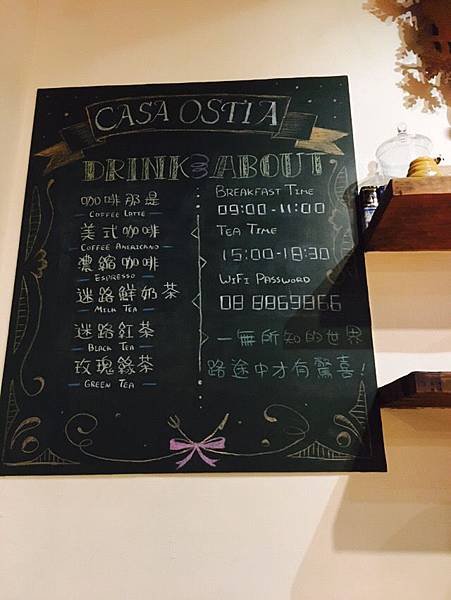 CASA OSTIA
DRINK & ABOUT
咖啡那是
COFFEE LATTE
美式咖啡
COFFEE AMERICANO
濃縮咖啡
ESPRESSO
迷路鮮奶茶
MILK TEA
迷路紅茶
BLACK TEA
玫瑰綠茶
GREEN TEA
BREAKFAST TIME
09:00-11:00
TEA TIME
15:00-18:30
WIFI PASSWORD
08 8869866
一無所知的世界
路途中才有驚喜!